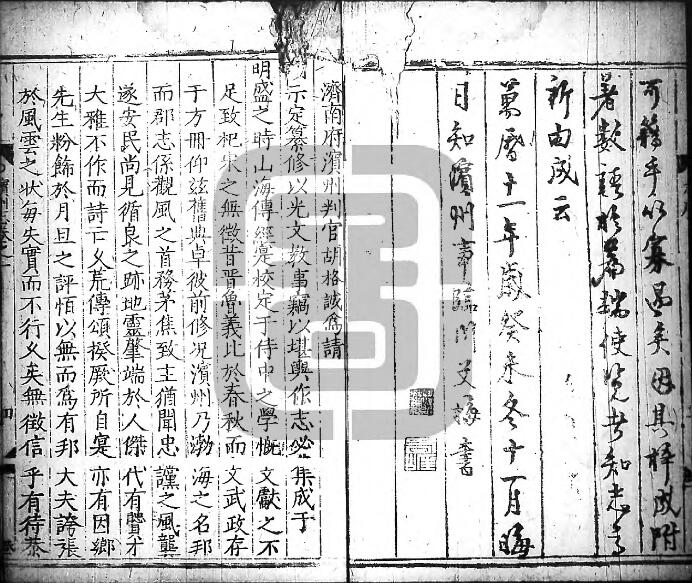 可藉手以寡過矣因其梓成附
著數語於篇端使覽者知志之
所由成云
萬曆十一年歲癸未冬十一月晦
日知濱州事臨川艾梅書
濟南府濱州判官胡格誠爲請
示定纂修以光文教事竊以堪輿作志必集成于
明盛之時山海傳經寔校定于侍中之學慨文獻之不
足致杞宋之無徵昔晋魯義比於春秋而文武政存
于方冊仰兹舊典卓彼前修况濱州乃渤海之名邦
而郡志係觀風之首務茅焦致主猶聞忠讜之風龔
遂安民尚見循良之跡地靈肇端於人傑代有賢才
大雅不作而詩亡义荒傳頌揆厥所自寔亦有因鄉
先生粉飾於月旦之評恒以無而爲有邦大夫誇張
於風雲之狀每失實而不行义矣無徵信乎有待恭